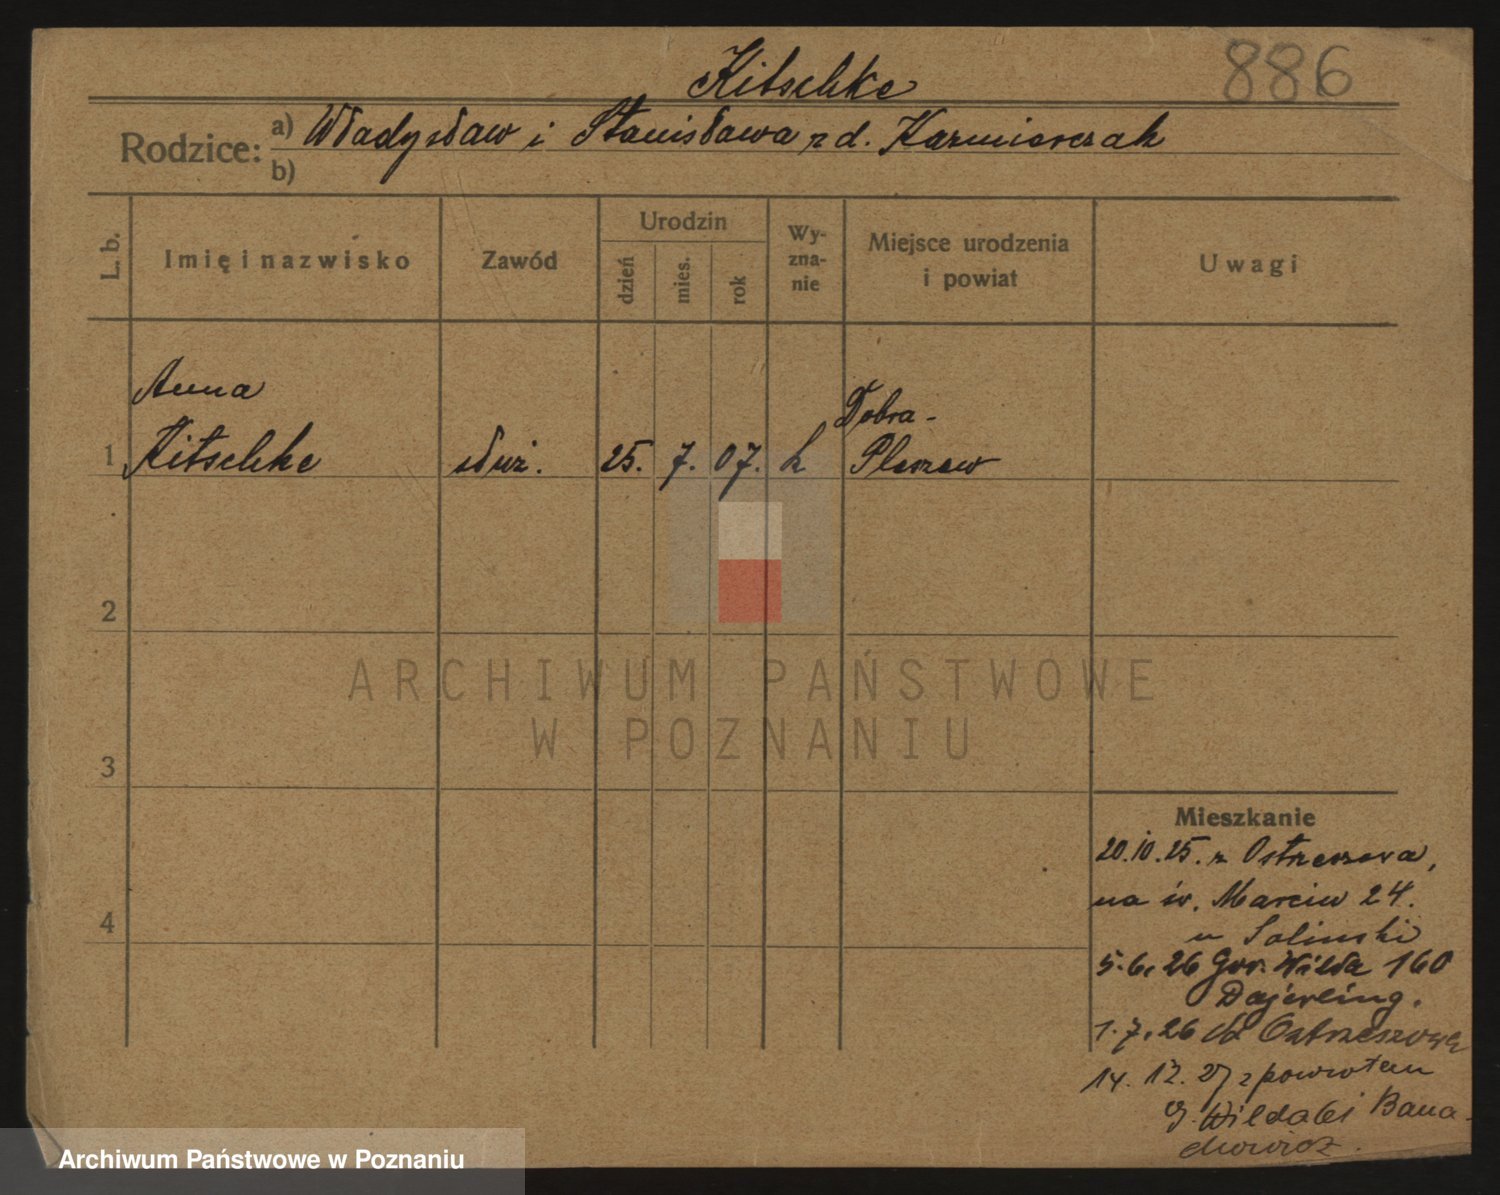 Kitschke
886
Rodzice: a) Władysław i Stanisława zd. Kazmierczak
b)
L. b.
Imię i nazwisko
Zawód
Urodzin
dzień
mies.
rok
Wy-
zna-
nie
Miejsce urodzenia
i powiat
Uwagi
Anna
Dobra-
1 Kitschke służ. 25. 7. 07. k Pleszew
2
ARCHIWUM PAŃSTWOWE
W POZNANIU
3
Mieszkanie
20.10.25. z Ostrzeszowa,
na św. Marcin 24.
u Solinski
4
5.6.26 Gór. Wilda 160
Dajerling.
1.7.26 do Ostrzeszowa
14. 12. 27 z powrotem
G. Wilda 61 Bana-
chowicz.
Archiwum Państwowe w Poznaniu